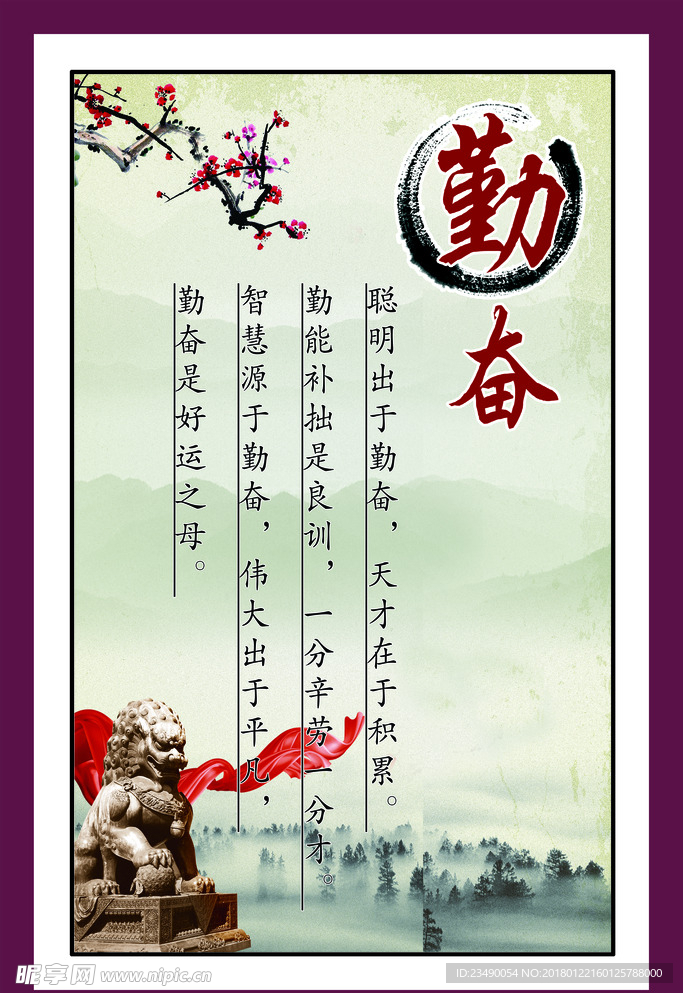 勤奋
聪明出于勤奋，天才在于积累。
勤能补拙是良训，一分辛劳一分才。
智慧源于勤奋，伟大出于平凡，
勤奋是好运之母。
昵享网 www.nipic.cn
ID:23490054 NO:20180122160125788000